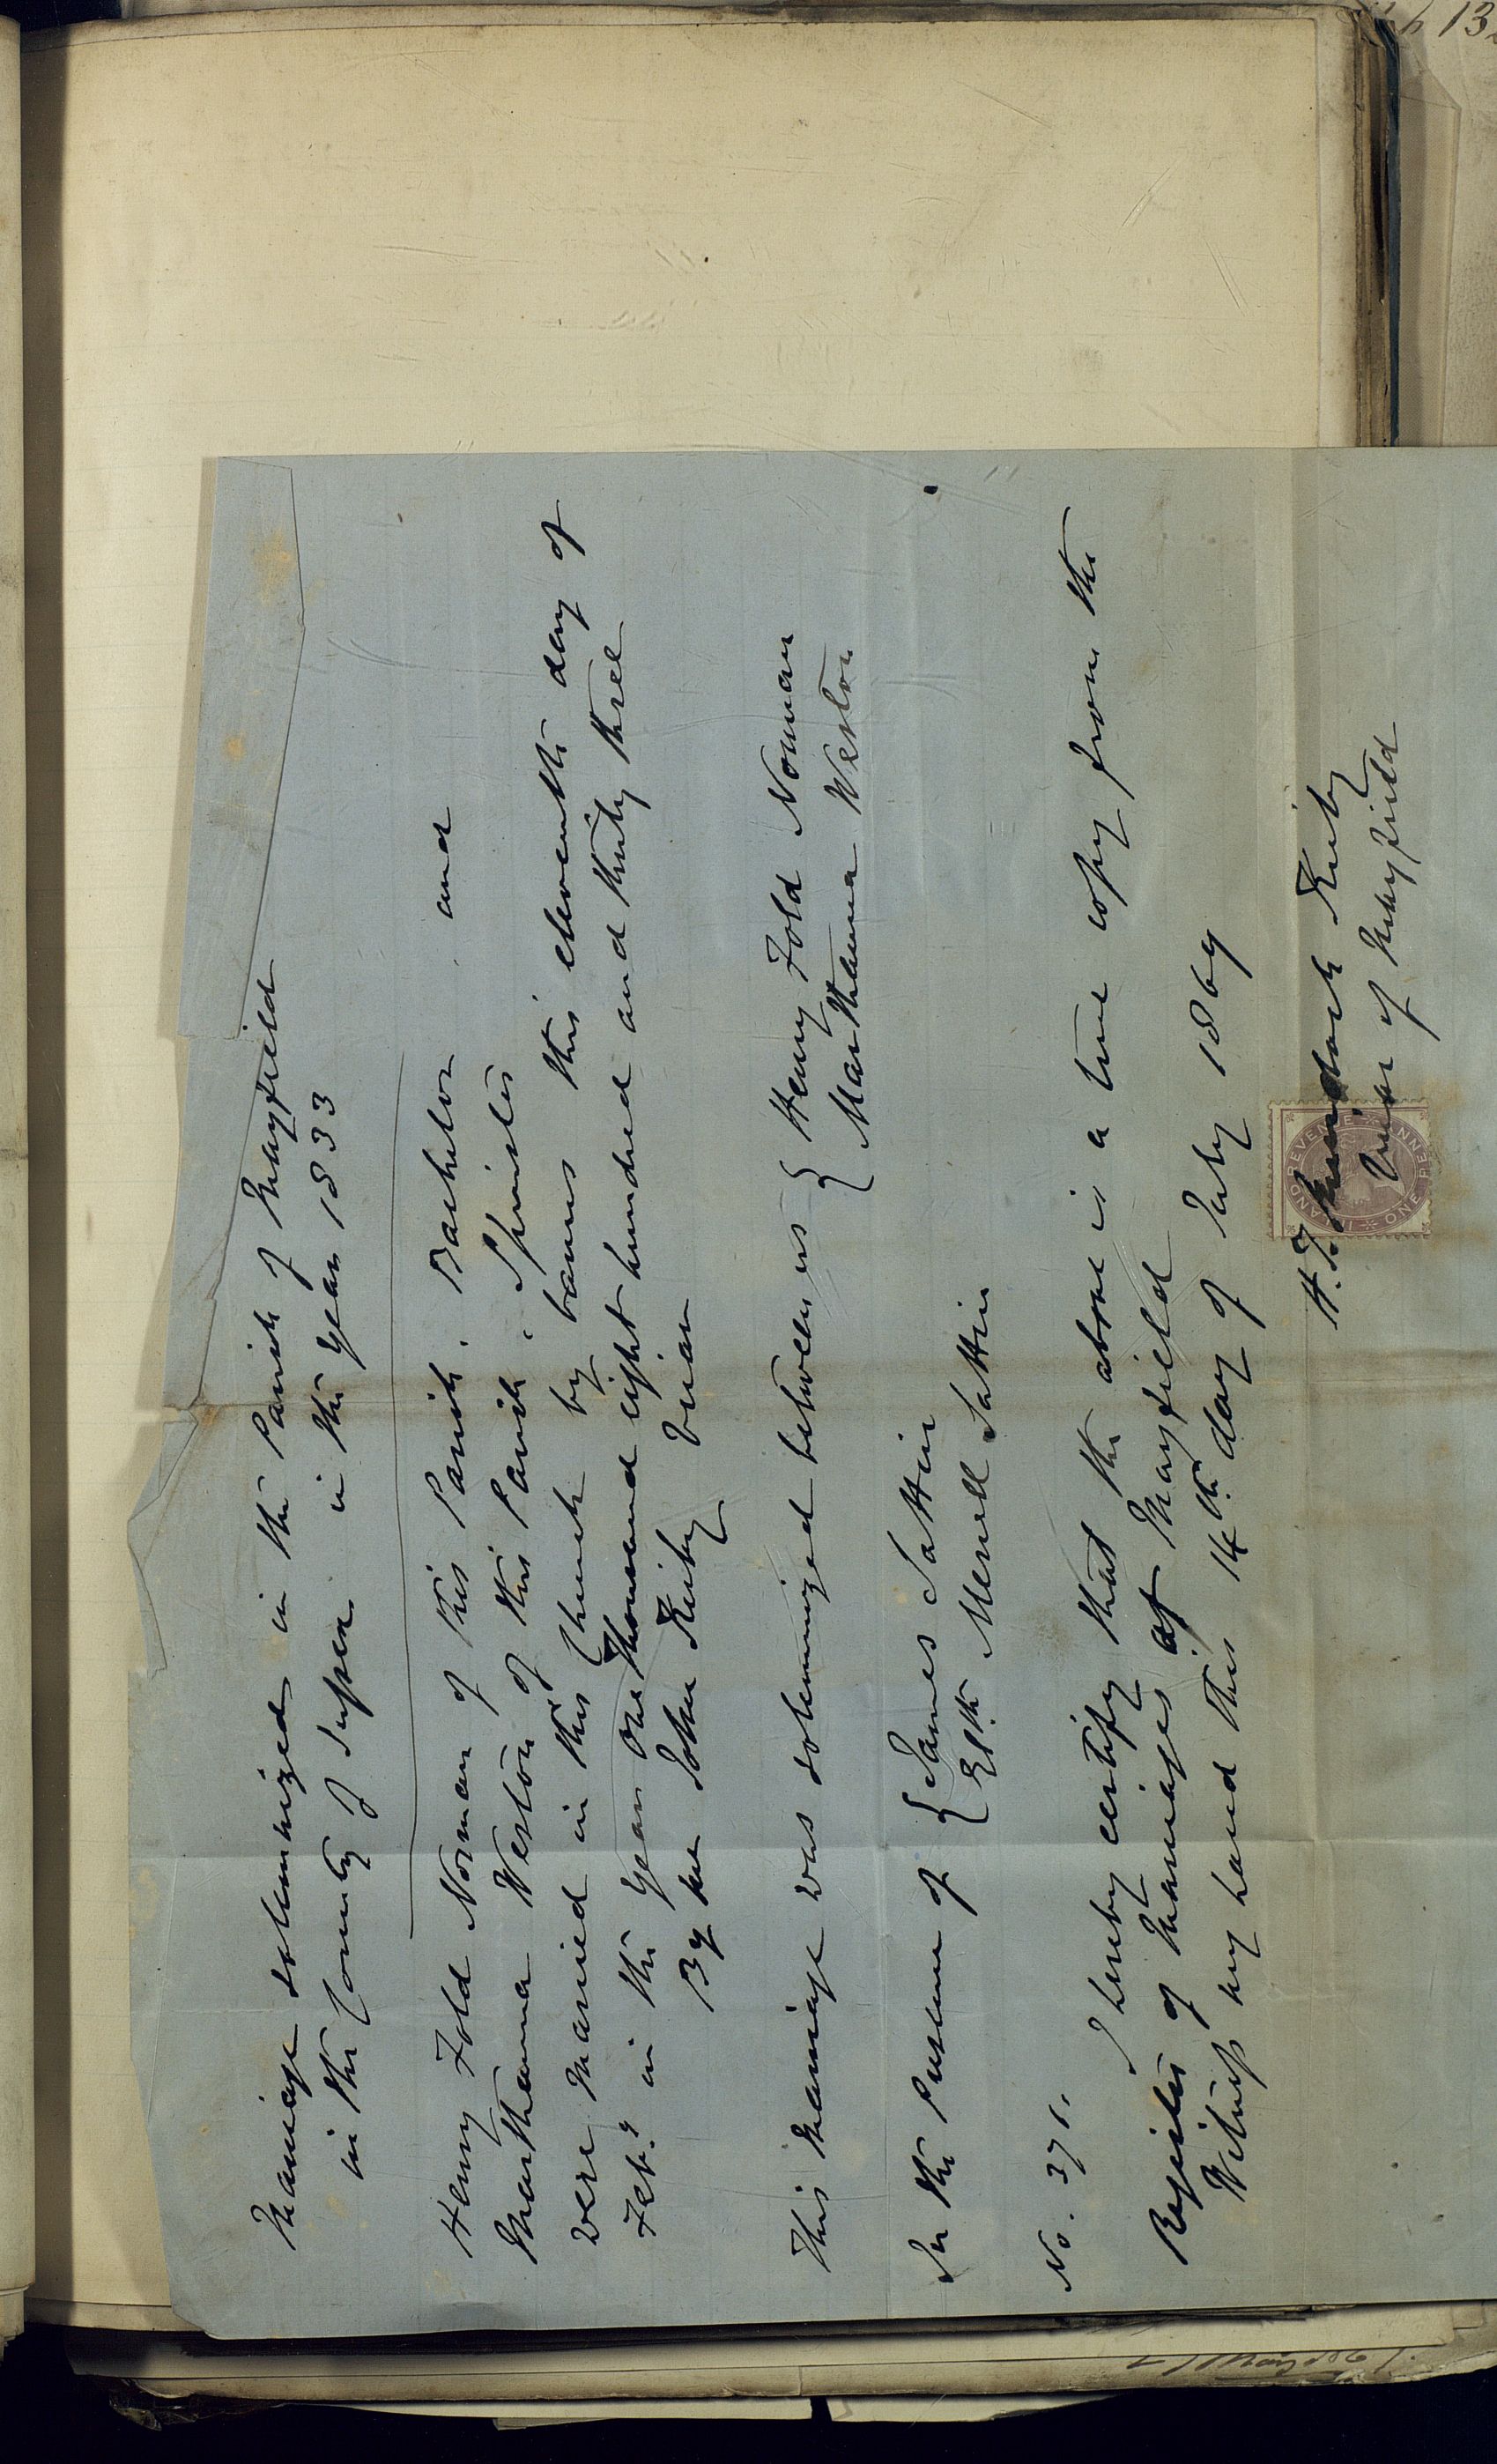 Marriage solemnized in the Parish of Mayfield
in the County of Sussex in the year 1833
Henry Fold Norman of this Parish, Bachelor and
Marthanna Weston of this Parish, Spinster
were married in this Church by banns this eleventh day of
Feb.y in the year One Thousand eight hundred and thirty three
By me John Kirby Vicar
This marriage was solemnized between us { Henry Fold Norman
Marthanna Weston
In the Presence of { James Sattin
Elth. Menell Sattin
No. 371.
I hereby certify that the above is a true copy from the
Register of Marriages at Mayfield
Witness my hand this 14th. day of July 1869
H. T. M. Kirby
Vicar of Mayfield
INLAND REVENUE
ONE PENNY